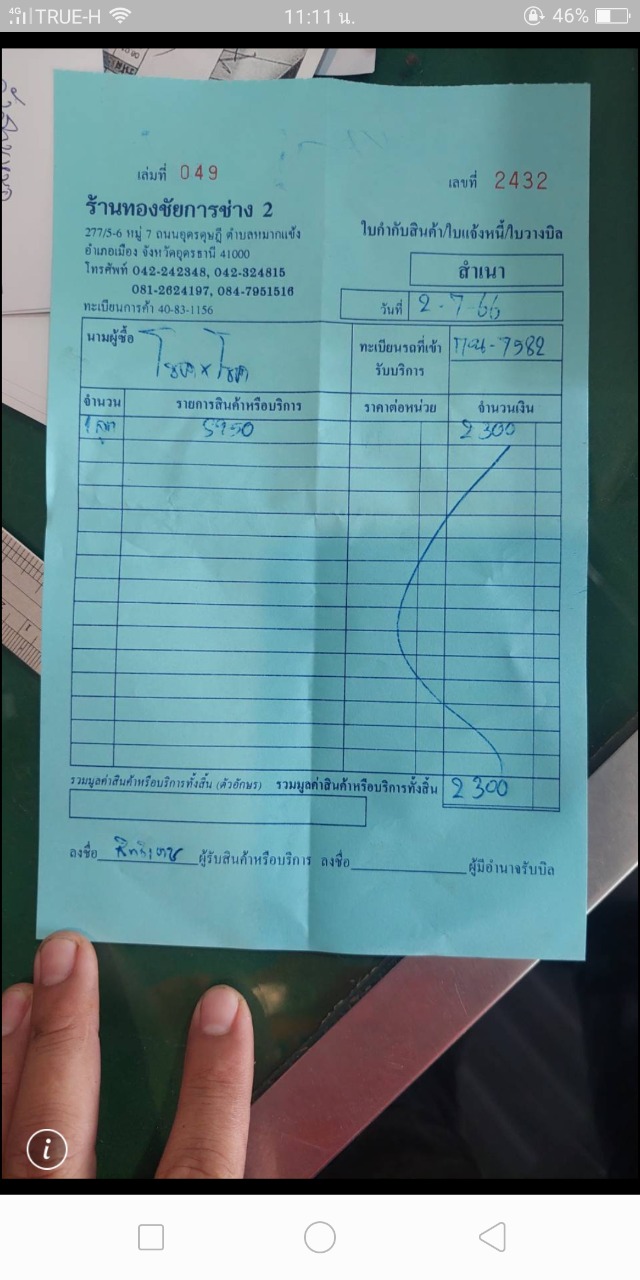 TRUE-H 11:11 น. 46%
เล่มที่ 049
เลขที่ 2432
ร้านทองชัยการช่าง 2
277/5-6 หมู่ 7 ถนนอุดรดุษฎี ตำบลหมากแข้ง
อำเภอเมือง จังหวัดอุดรธานี 41000
โทรศัพท์ 042-242348, 042-324815
081-2624197, 084-7951516
ทะเบียนการค้า 40-83-1156
ใบกำกับสินค้า/ใบแจ้งหนี้/ใบวางบิล
สำเนา
วันที่ 2-7-66
นามผู้ซื้อ
ทะเบียนรถที่เข้ารับบริการ -7982
จำนวน รายการสินค้าหรือบริการ ราคาต่อหน่วย จำนวนเงิน
1 5950 2300
รวมมูลค่าสินค้าหรือบริการทั้งสิ้น (ตัวอักษร) รวมมูลค่าสินค้าหรือบริการทั้งสิ้น 2300
ลงชื่อ ผู้รับสินค้าหรือบริการ ลงชื่อ ผู้มีอำนาจรับบิล